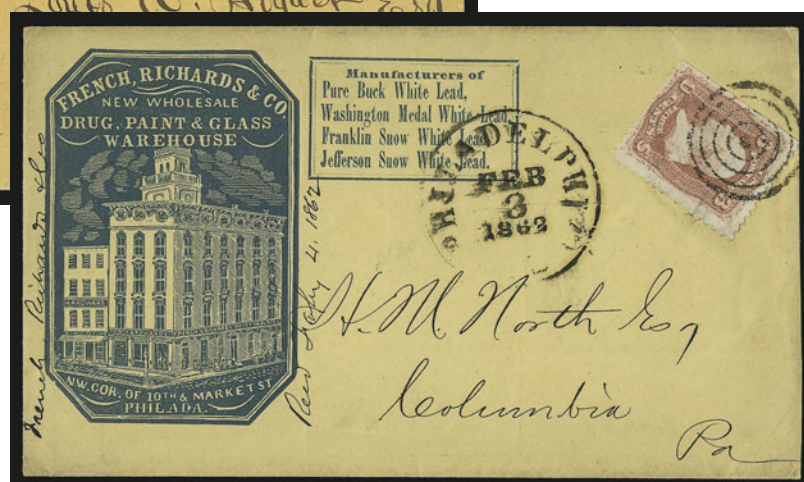 FRENCH, RICHARDS & CO.
NEW WHOLESALE
DRUG, PAINT & GLASS
WAREHOUSE
HARDWARE
N.W. COR. OF 10TH & MARKET ST
PHILADA.
Manufacturers of
Pure Buck White Lead,
Washington Medal White Lead,
Franklin Snow White Lead,
Jefferson Snow White Lead.
PHILADELPHIA
FEB
3
1862
H. M. North Esq
Columbia
Pa
French Richards & Co
4. 1862
Esq